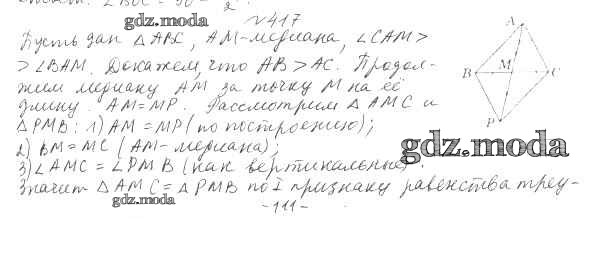 ∠BOC = 90° - 2
gdz.moda
№417
Пусть дан △ABC, AM-медиана, ∠CAM >
> ∠BAM. Докажем, что AB > AC. Продол-
жим медиану AM за точку M на её
длину. AM=MP. Рассмотрим △AMC и
△PMB: 1) AM = MP (по построению);
2) BM = MC (AM - медиана);
3) ∠AMC = ∠PMB (как вертикальные)
Значит △AMC = △PMB по I признаку равенства треу-
-111-
A
B
M
C
P
gdz.moda
gdz.moda